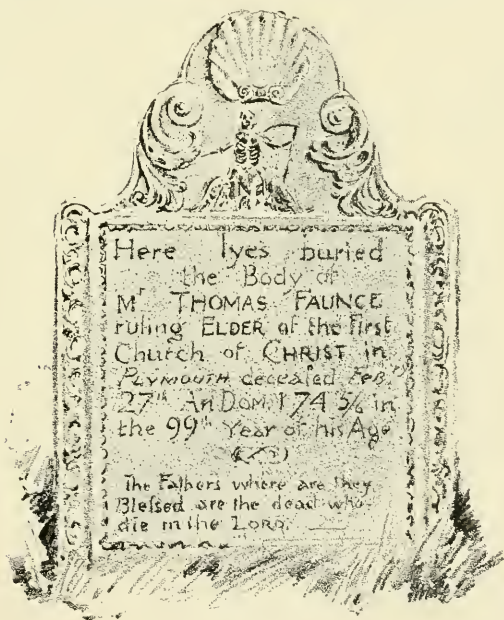 Here lyes buried
the Body of
Mr THOMAS FAUNCE
ruling ELDER of the first
Church of CHRIST in
PLYMOUTH deceased Feb:ry
27th An:Dom. 1745/6 in
the 99th Year of his Age
The Fathers where are they
Blessed are the dead who
die in the LORD.